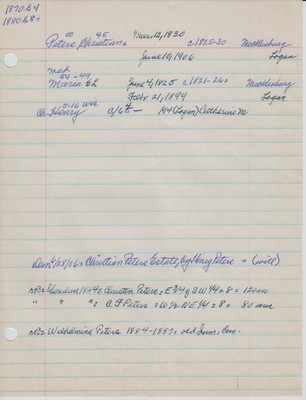 1870 & 4
1880 & 8
50 45
Peters, Christian Mar. 12, 1830 c 1825-30 Mecklenburg
June 19, 1906 Logan
54-49
Maria June 4, 1825 c 1821-26 Mecklenburg
Febr 21, 1899 Logan
15-16 Wis
Ch: Henry c/65- 144 (Logan) Catherine M.
1/28/06 Christian Peters Estate, by Henry Peters = (will)
Sheridan 1884 Christian Peters = E 3/4 of SW 1/4 = 8 = 120 acres
" " " C. F. Peters = W 1/2 NE 1/4 = 8 = 80 acres
Wilhelmina Peters 1884-1887 old Imm. Cem.